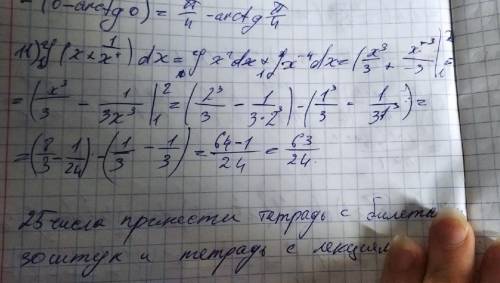 - (0 - arctg 0) = π/4 - arctg π/4
11) ∫ (x + 1/x⁴) dx = ∫ x² dx + ∫₁ x⁻⁴ dx = (x³/3 + x⁻³/-3 |₁² =
= (x³/3 - 1/3x³ |₁² = (2³/3 - 1/3·2³) - (1³/3 - 1/31³) =
= (8/3 - 1/24) - (1/3 - 1/3) = 64-1/24 = 63/24.
25 числа принести тетрадь с билеты
30 штук и тетрадь с лекциям